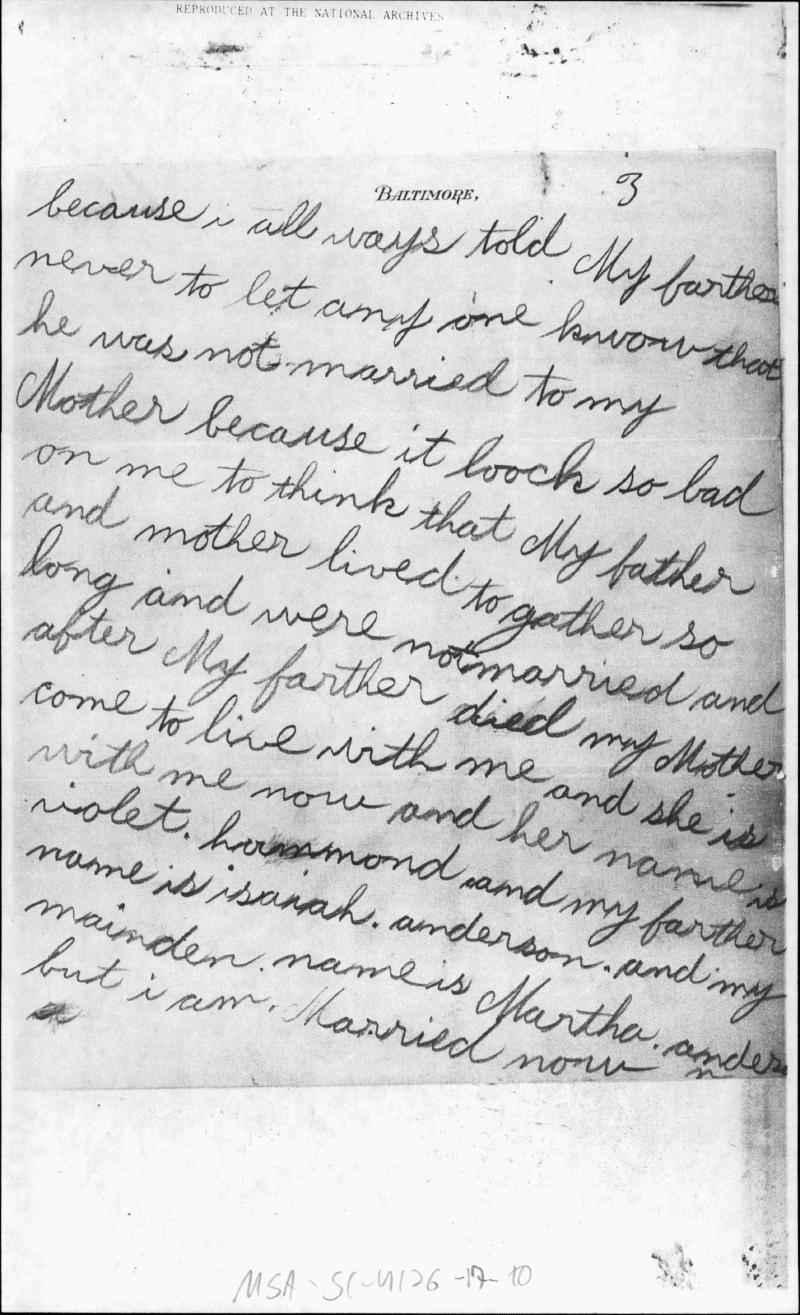 REPRODUCED AT THE NATIONAL ARCHIVES
BALTIMORE, 3
because i all ways told My farther
never to let any one knwow that
he was not married to my
Mother because it loock so bad
on me to think that My father
and mother lived to gather so
long and were not married and
after My farther died my Mother
come to live with me and she is
with me now and her name is
violet. hammond and my farther
name is isaiah. anderson. and my
mainden. name is Martha. anders
n
but i am. Married now
MSA-SC-4126-17-10